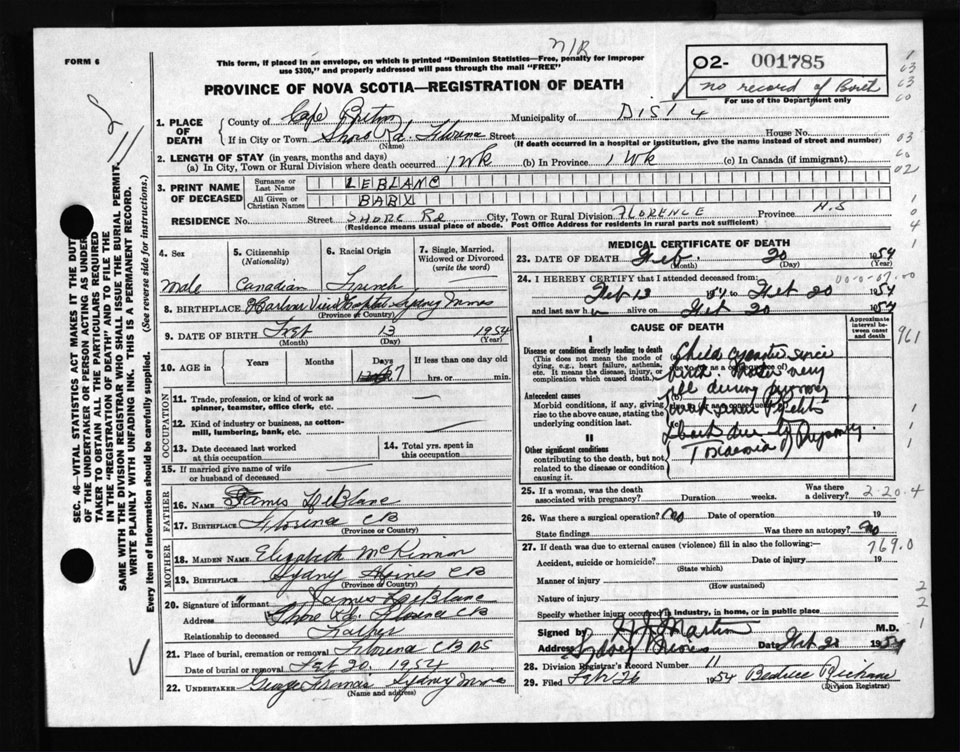 FORM 6
N/B
This form, if placed in an envelope, on which is printed "Dominion Statistics—Free, penalty for improper
use $300," and properly addressed will pass through the mail "FREE"
O2- 001785
no record of Birth
For use of the Department only
PROVINCE OF NOVA SCOTIA—REGISTRATION OF DEATH
1. PLACE OF DEATH
County of Cape Breton Municipality of DIST 4
If in City or Town Shore Rd. Florence Street House No.
(Name) (If death occurred in a hospital or institution, give the name instead of street and number)
2. LENGTH OF STAY (in years, months and days)
(a) In City, Town or Rural Division where death occurred 1 WK (b) In Province 1 WK (c) In Canada (if immigrant)
3. PRINT NAME OF DECEASED
Surname or Last Name LEBLANC
All Given or Christian Names BABY
RESIDENCE No. Street SHORE Rd City, Town or Rural Division FLORENCE Province N.S
(Residence means usual place of abode. Post Office Address for residents in rural parts not sufficient)
4. Sex 5. Citizenship (Nationality) 6. Racial Origin 7. Single, Married, Widowed or Divorced (write the word)
Male Canadian French —
8. BIRTHPLACE Harbour View Hospital Sydney Mines
(Province or Country)
9. DATE OF BIRTH Feb 13 1954
(Month) (Day) (Year)
10. AGE in Years Months Days If less than one day old
7 hrs. or min.
OCCUPATION
11. Trade, profession, or kind of work as spinner, teamster, office clerk, etc. —
12. Kind of industry or business, as cotton-mill, lumbering, bank, etc. —
13. Date deceased last worked at this occupation
14. Total yrs. spent in this occupation
15. If married give name of wife or husband of deceased
FATHER
16. NAME James LeBlanc
17. BIRTHPLACE Florence CB
(Province or Country)
MOTHER
18. MAIDEN NAME Elizabeth McKinnon
19. BIRTHPLACE Sydney Mines CB
(Province or Country)
20. Signature of informant James LeBlanc
Address Shore Rd. Florence CB
Relationship to deceased Father
21. Place of burial, cremation or removal Florence CB NS
Date of burial or removal Feb 20. 1954
22. UNDERTAKER George Thomas Sydney Mines
(Name and address)
MEDICAL CERTIFICATE OF DEATH
23. DATE OF DEATH Feb. 20 1954
(Month) (Day) (Year)
24. I HEREBY CERTIFY that I attended deceased from:
Feb 13 1954 to Feb 20 1954
and last saw h alive on Feb 20 1954
CAUSE OF DEATH
Approximate interval between onset and death
I
Disease or condition directly leading to death
(This does not mean the mode of dying, e.g., heart failure, asthenia, etc. It means the disease, injury, or complication which caused death.)
Child cyanotic since
birth. Mother very
ill during
Antecedent causes
Morbid conditions, if any, giving rise to the above cause, stating the underlying condition last.
II
Other significant conditions
contributing to the death, but not related to the disease or condition causing it.
due to
Toxaemia of Pregnancy.
961
25. If a woman, was the death associated with pregnancy? Duration weeks. Was there a delivery? 2-20-4
26. Was there a surgical operation? No Date of operation 19
State findings Was there an autopsy? No
27. If death was due to external causes (violence) fill in also the following:— 769.0
Accident, suicide or homicide? Date of injury 19
(State which)
Manner of injury
(How sustained)
Nature of injury
Specify whether injury occurred in industry, in home, or in public place
Signed by Martin M.D.
Address Sydney Mines Date Feb 20 1954
28. Division Registrar's Record Number 11
29. Filed Feb 26 1954 Beatrice
(Division Registrar)
SEC. 46—VITAL STATISTICS ACT MAKES IT THE DUTY
OF THE UNDERTAKER OR PERSON ACTING AS UNDER-
TAKER TO OBTAIN ALL THE PARTICULARS REQUIRED
IN THE "REGISTRATION OF DEATH" AND TO FILE THE
SAME WITH THE DIVISION REGISTRAR WHO SHALL ISSUE THE BURIAL PERMIT.
WRITE PLAINLY WITH UNFADING INK. THIS IS A PERMANENT RECORD.
Every item of information should be carefully supplied. (See reverse side for instructions.)